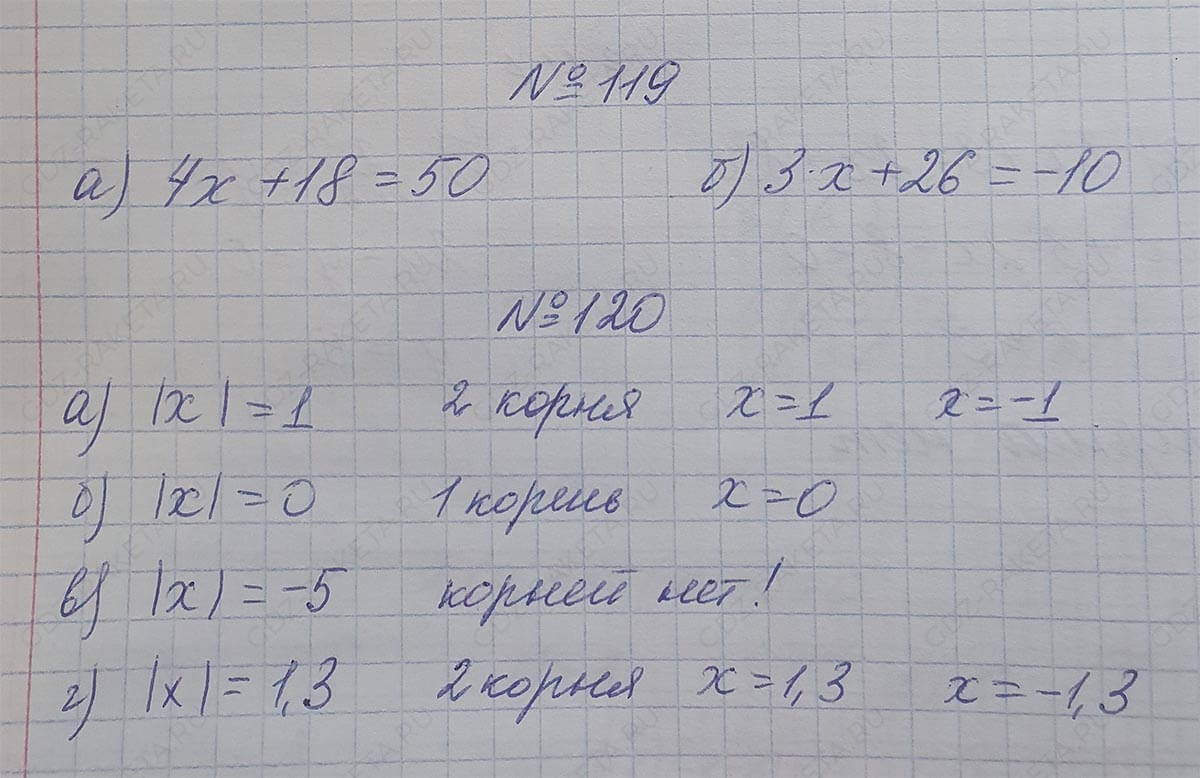 №119
а) 4x + 18 = 50 б) 3·x + 26 = -10
№120
а) |x| = 1 2 корня x = 1 x = -1
б) |x| = 0 1 корень x = 0
в) |x| = -5 корней нет!
г) |x| = 1,3 2 корня x = 1,3 x = -1,3